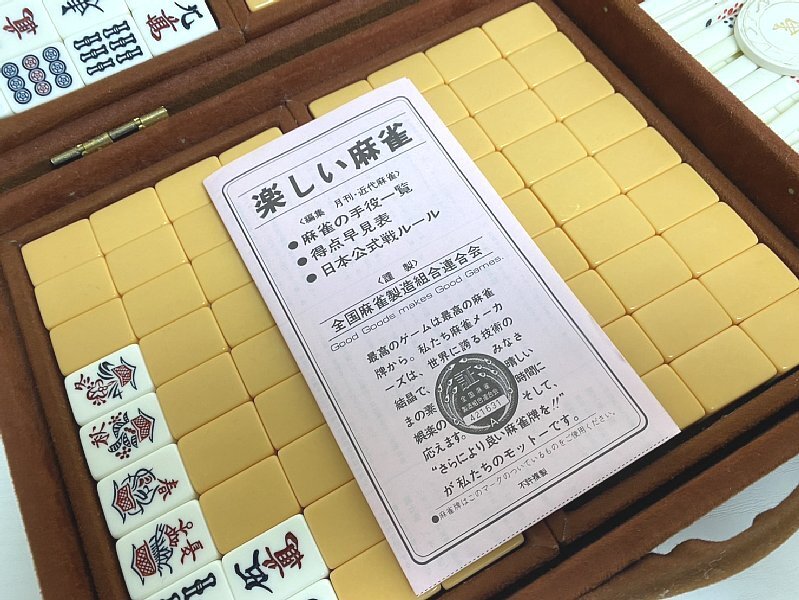 楽しい麻雀
〈編集 月刊・近代麻雀〉
●麻雀の手役一覧
●得点早見表
●日本公式戦ルール
〈謹製〉
全国麻雀製造組合連合会
Good Goods makes Good Games.
最高のゲームは最高の麻雀
牌から。私たち麻雀メーカ
ーズは、世界に誇る技術の
結晶で、みなさ
まの素晴しい
娯楽の時間に
応えます。そして、
“さらにより良い麻雀牌を!!”
が私たちのモットーです。
●麻雀牌はこのマークのついているものをご使用ください。
不許複製
421631
A
秋
春
萬
萬
九